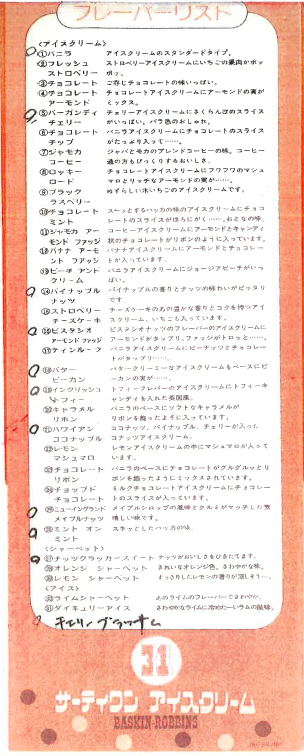 フレーバーリスト
〈アイスクリーム〉
①バニラ アイスクリームのスタンダードタイプ。
②フレッシュ ストロベリーアイスクリームにいちごの果肉がポッ
ストロベリー ポッ。
③チョコレート ご存じチョコレートの味いっぱい。
④チョコレート チョコレートアイスクリームにアーモンドの実が
アーモンド ミックス。
⑤バーガンディ チェリーアイスクリームにさくらんぼのスライス
チェリー がいっぱい。バラ色のおしゃれ。
⑥チョコレート バニラアイスクリームにチョコレートのスライス
チップ がたっぷり入って……。
⑦ジャモカ ジャバとモカのブレンドコーヒーの味。コーヒー
コーヒー 通の方もびっくりするおいしさ。
⑧ロッキー チョコレートアイスクリームにフワフワのマシュ
ロード マロとリッチなアーモンドの実が……。
⑨ブラック めずらしい木いちごのアイスクリームです。
ラズベリー
⑩チョコレート スーッとするハッカの味のアイスクリームにチョコ
ミント レートのスライスがほろにがく……、おとなの味。
⑪ジャモカ アー コーヒーアイスクリームにアーモンドとキャンディ
モンド ファッジ 状のチョコレートがリボンのように入っています。
⑫バナナ アーモ バナナアイスクリームにアーモンドとチョコレー
ンド ファッジ トが入っています。
⑬ピーチ アンド バニラアイスクリームにジョージアピーチがいっ
クリーム ぱい。
⑭パイナップル パイナップルの香りとナッツの味わいがピッタリ
ナッツ です。
⑮ストロベリー チーズケーキの名の豊かな香りとコクを持つアイ
チーズケーキ スクリーム、いちごも入っています。
⑯ピスタシオ ピスタシオナッツのフレーバーのアイスクリームに
アーモンド ファッジ アーモンドがタップリ、ファッジがトロッと……。
⑰ティンルーフ バニラアイスクリームにピーナッツとチョコレー
トがタップリ……。
⑱バター バタークリーミーなアイスクリームをベースにピ
ピーカン ーカンの実が……。
⑲イングリッシュ トフィーフレーバーのアイスクリームにトフィーキ
トフィー ャンディを入れた英国風。
⑳キャラメル バニラのベースにソフトなキャラメルが
リボン リボンを飾ったように入っています。
㉑ハワイアン ココナッツ、パイナップル、チェリーが入った
ココナップル ココナッツアイスクリーム。
㉒レモン レモンアイスクリームの中にマシュマロが入って
マシュマロ います。
㉓チョコレート バニラのベースにチョコレートがグルグルッとリ
リボン ボンを飾ったようにミックスされています。
㉔チョップド ミルクチョコレートアイスクリームにチョコレー
チョコレート トのスライスが入っています。
㉕ニューイングランド メイプルシロップの風味とクルミがマッチした素
メイプルナッツ 晴しい味です。
㉖ミント オン スキッとしたハッカの味。
ミント
〈シャーベット〉
㉗ナッツクラッカースイート ナッツがおいしさをひきたてます。
㉘オレンジ シャーベット きれいなオレンジ色。さわやかな味。
㉙レモン シャーベット すっきりしたレモンの香りが涼しそう…。
〈アイス〉
㉚ライムシャーベット あのライムのフレーバーでさわやか。
㉛ダイキュリーアイス さわやかなライムに冷めたーいラムの風味。
チェリーブラッサム
31
サーティワン アイスクリーム
BASKIN-ROBBINS